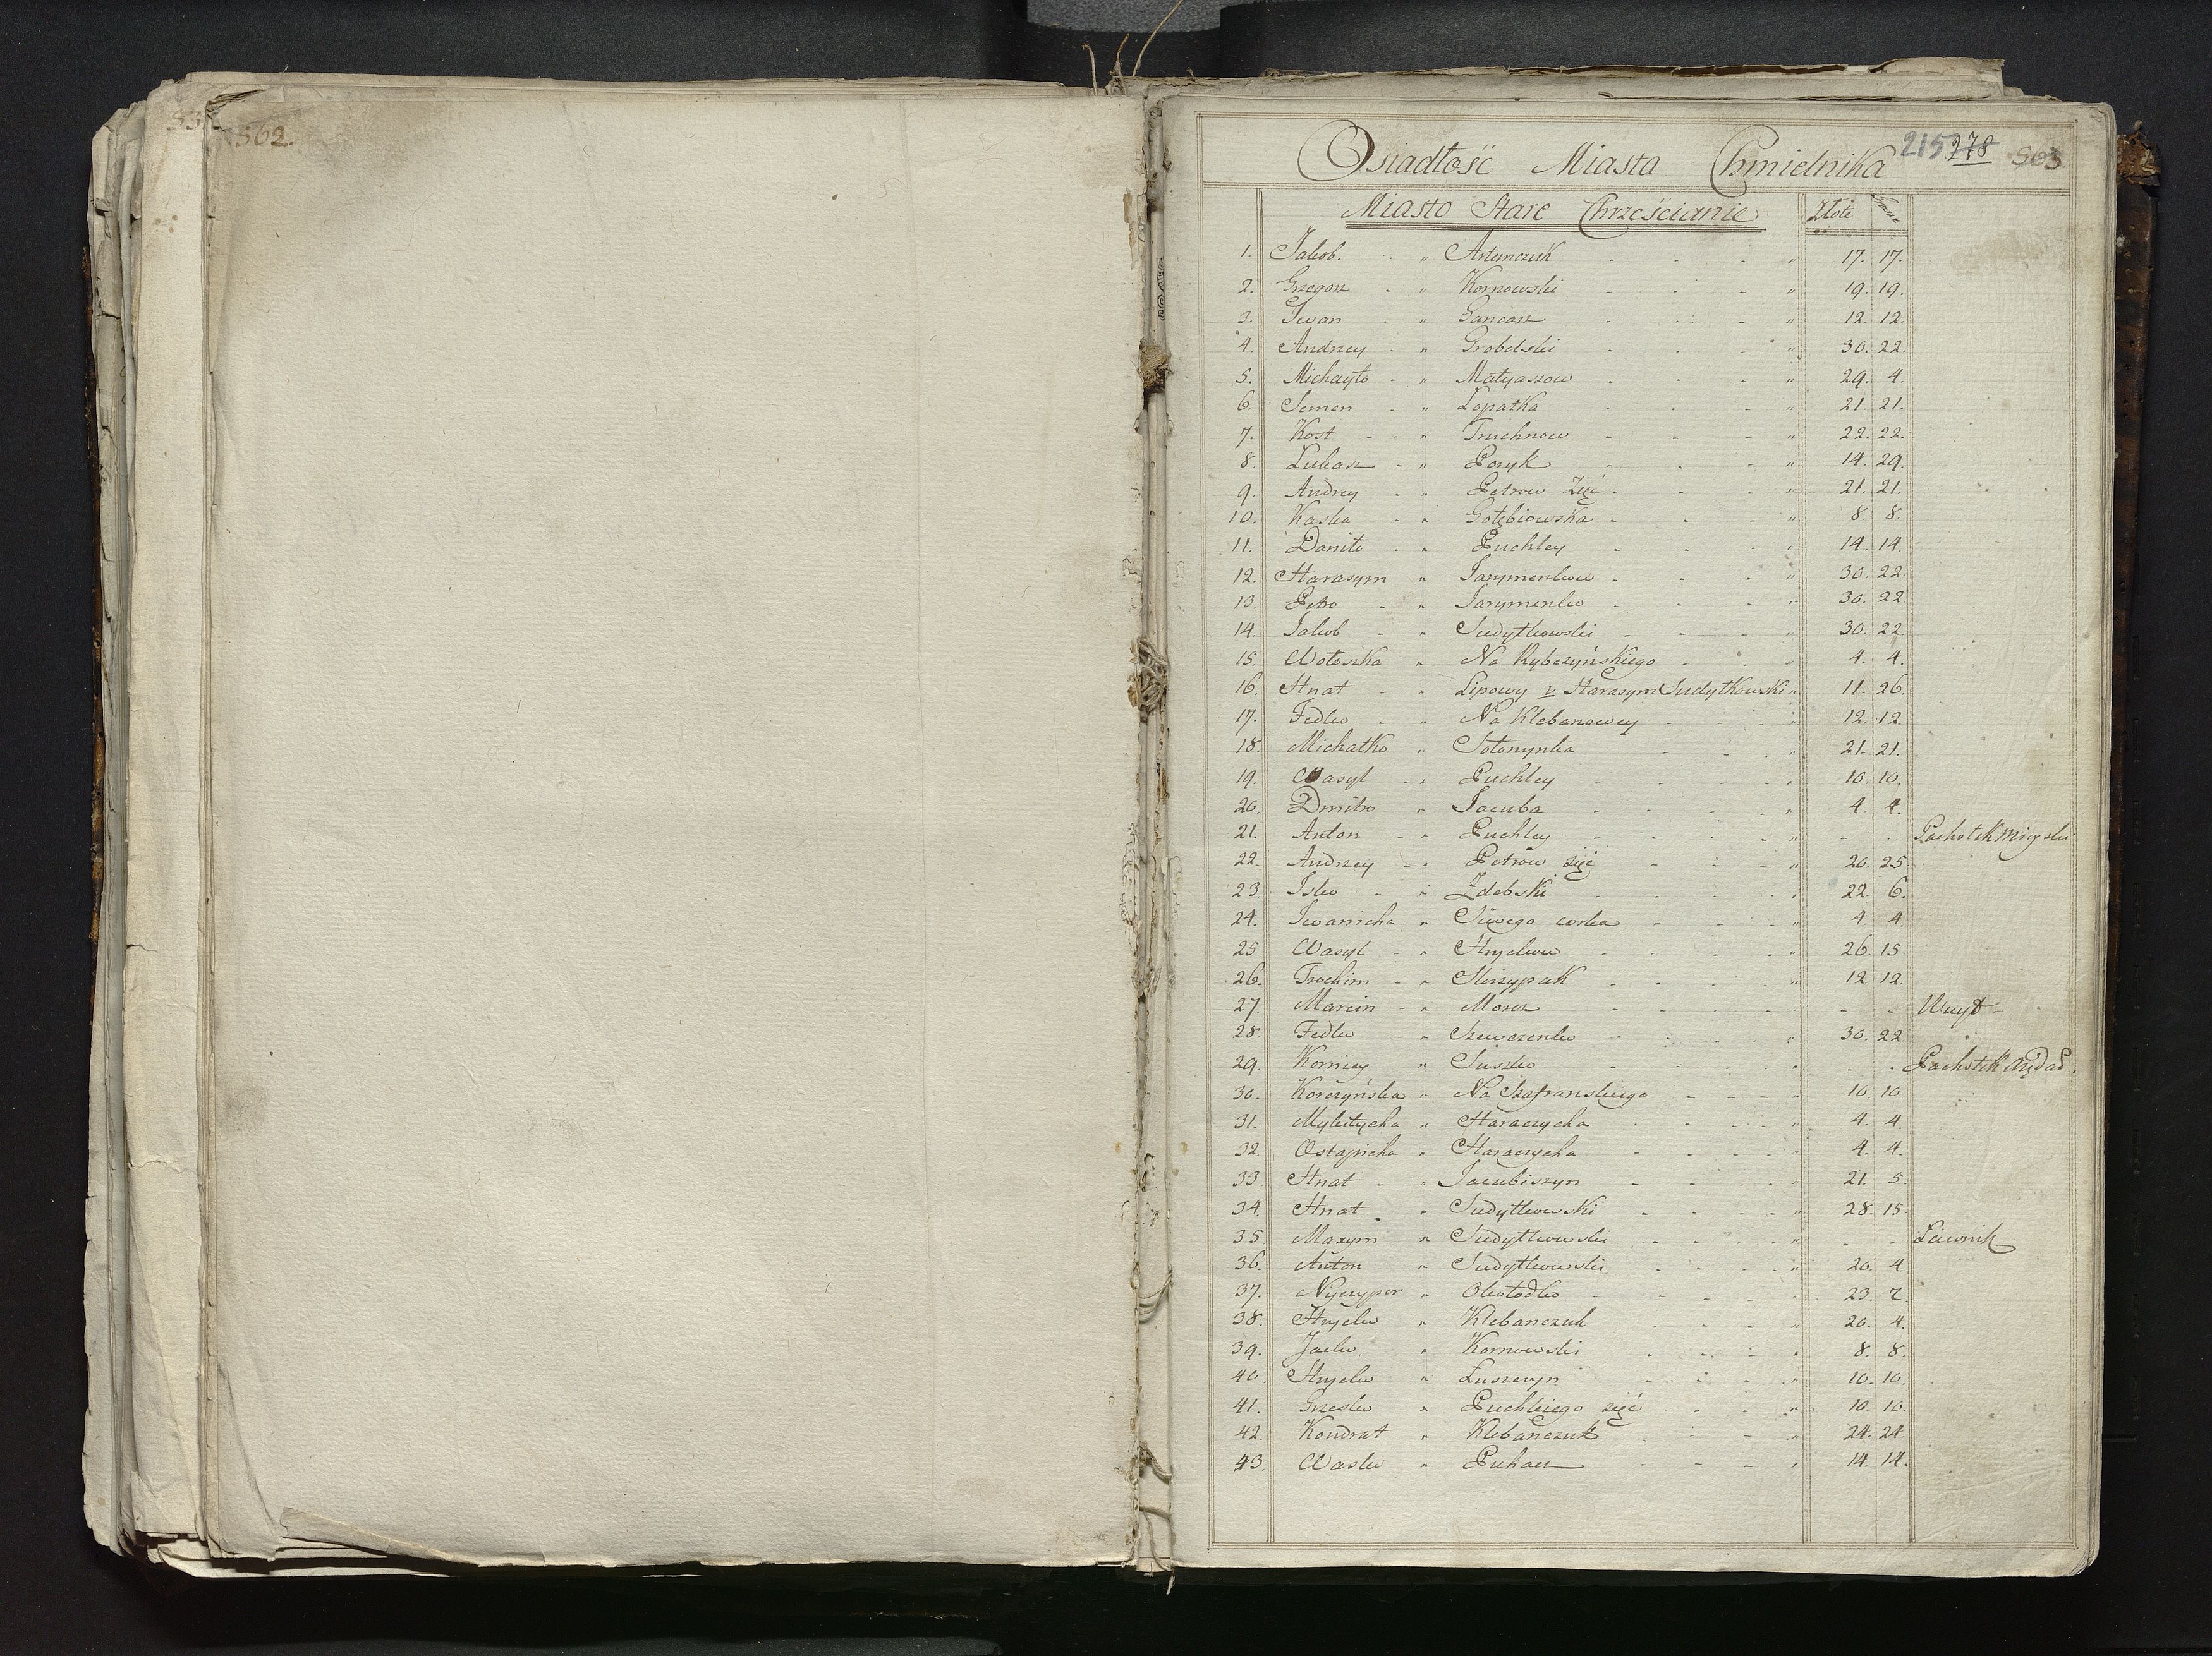 562.
215 278 563
Osiadłość Miasta Chmielnika
Miasto Stare Chrześcianie Złote
1. Jakob. " Artemczuk " 17. 17.
2. Grzegorz " Kornowski " 19. 19.
3. Iwan " Gancarz " 12. 12.
4. Andrzey " Grobelski " 30. 22.
5. Michayło " Matyaszow " 29. 4.
6. Semen " Łopatka " 21. 21.
7. Kost " Truchnow " 22. 22.
8. Łukasz " Pozyk " 14. 29.
9. Andrey " Petrow Zięć " 21. 21.
10. Kaska " Gołębiowska " 8. 8.
11. Daniło " Puchley " 14. 14.
12. Harasym " Jarymenkow " 30. 22.
13. Petro " Jarymenko " 30. 22
14. Jakob " Sudytkowski " 30. 22.
15. Wołoszka " Na Rybczyńskiego 4. 4.
16. Hnat " Lipowy v Harasym Sudytkowski " 11. 26.
17. Fedko " Na Klebanowey " 12. 12.
18. Michałko " Sołonynka " 21. 21.
19. Wasyl " Puchley " 10. 10.
20. Dmitro " Jacuba " 4. 4.
21. Anton " Puchley " Pachołek Mieyski
22. Andrzey " Petrow zięć " 20. 25.
23. Isko " Zdebski " 22. 6.
24. Iwanicha " Siwego corka 4. 4.
25 Wasyl " Hryckow " 26 15
26. Trochim " Skrzypak " 12. 12.
27. Marcin " Moroz Woyt
28. Fedko " Szewczenko " 30. 22.
29. Korniey " Suszko Pachołek
30. Korczyńska " Na Szafranskiego " 10. 10.
31. Mykitycha " Haraczycha " 4. 4.
32. Ostapicha " Haraczycha " 4. 4.
33. Hnat " Jacubiszyn " 21. 5.
34. Hnat " Sudytkowski " 28. 15.
35. Maxym " Sudytkowski " Ławnik
36. Anton " Sudytkowski " 20. 4
37. Nyczypor " Okołodko 23. 7.
38. Hrycko " Klebanczuk " 20. 4.
39. Jacko " Kornowski " 8. 8.
40. Hrycko " Łuszczyn " 10. 10.
41. Grzesko " Puchlego zięć " 10. 10.
42. Kondrat " Klebanczuk " 24. 24
43. Wasko " Puhacz " 14. 14.